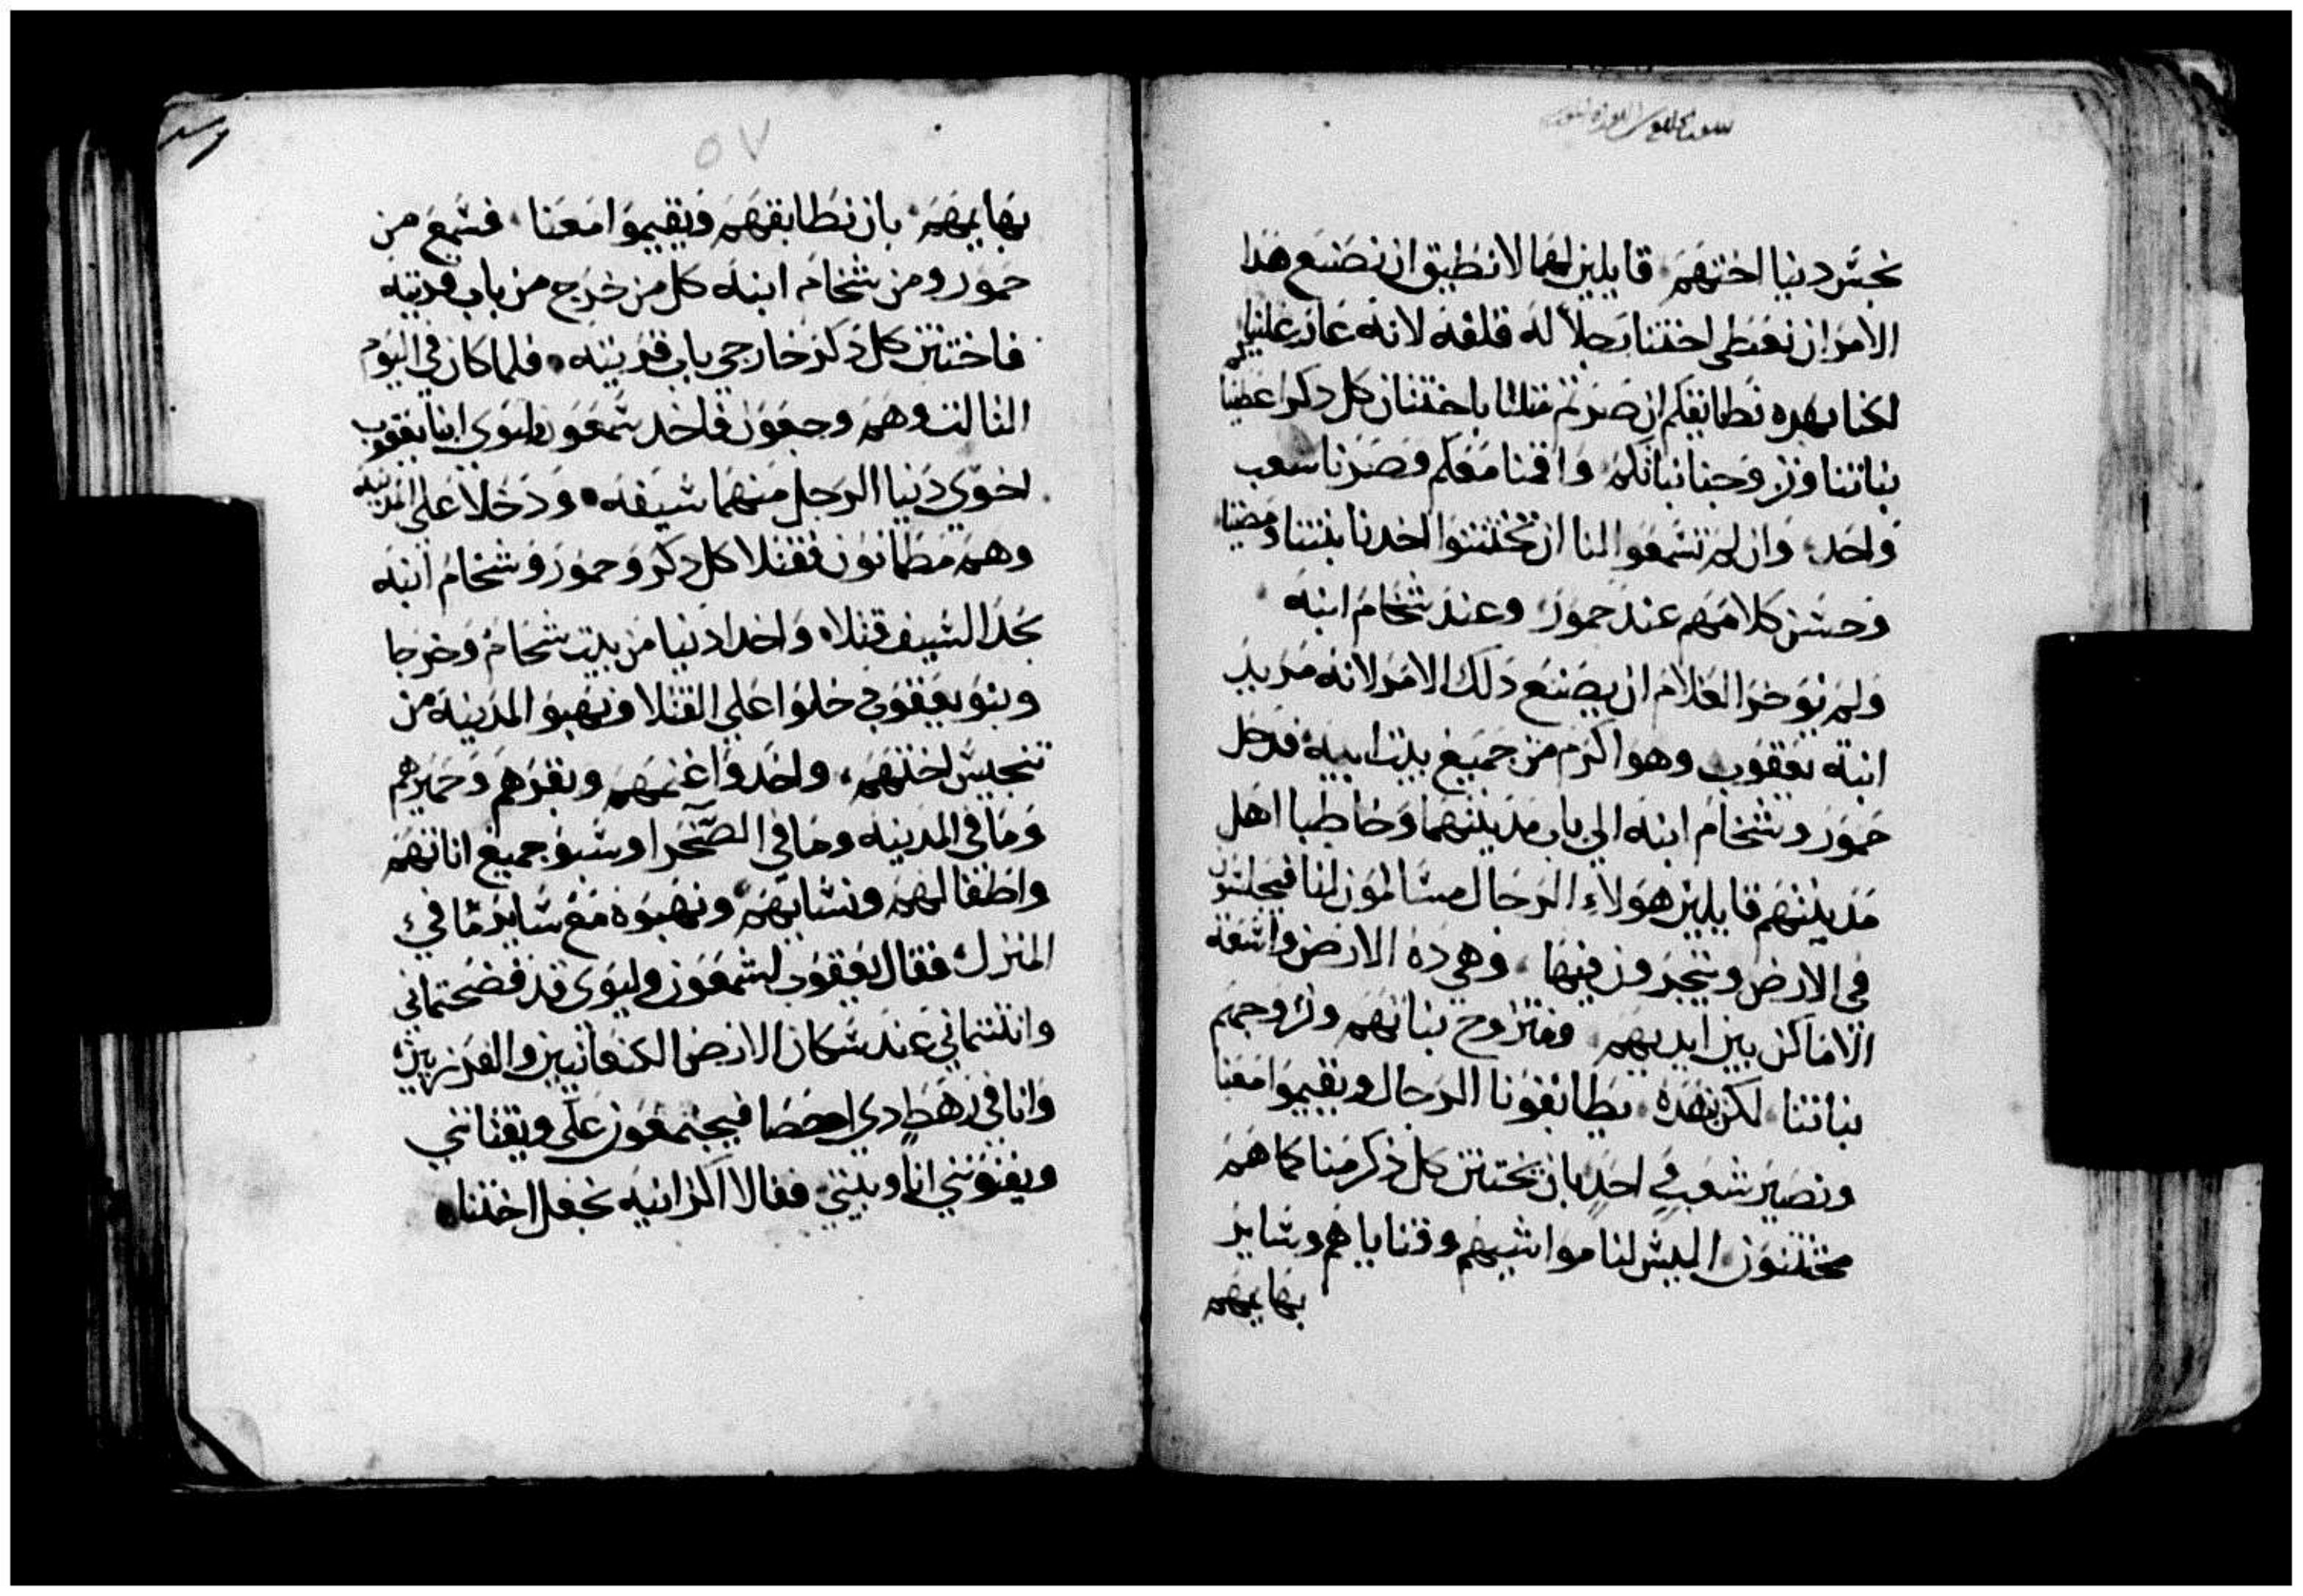 نجس دنيا اختهم قايلين لهما لا نطيق ان نصنع هذا
الامر ان نعطى اختنا رجلاً له قلفه لانه عار علينا
لكنا بهده نطابقكم ان صرتم متلنا باختتان كل دكر اعطينا
بناتنا وتزوجنا بناتكم واقمنا معكم وصرنا شعب
واحد وان لم تسمعوا لمنا ان تختتنوا اخدنا بنتنا ومضينا
وحسن كلامهم عند حمور وعند شخام ابنه
ولم يوخر الغلام ان يصنع دلك الامر لانه مريد
ابنة يعقوب وهو اكرم من جميع بيت ابيه فدخل
حمور وشخام ابنه الي باب مدينتهما وخاطبا اهل
مدينتهم قايلين هولاء الرجال مسالمون لنا فيجلسون
في الارض ويتجرون فيها وهي ده الارض واسعة
الاماكن بين ايديهم ونتزوج بناتهم ونزوجهم
بناتنا لكن بهده يطابقونا الرجال ويقيموا معنا
ونصير شعب واحد بان نختتن كل ذكر منا كما هم
مختتنون اليس لنا مواشيهم وقناياهم وساير
بهايمهم
٥٧
بهايمهم بان نطابقهم ويقيموا معنا فسمع من
حمور ومن شخام ابنه كل من خرج من باب قريته
فاختتن كل دكر خارجي باب قريته فلما كان في اليوم
التالت وهم وجعون فاخد شمعون وليوى ابنا يعقوب
اخوي دنيا الرجل منهما سيفه ودخلا على المدينه
وهم مطمانون فقتلا كل دكر وحمور وشخام ابنه
بحد السيف قتلا واخدا دنيا من بيت شخام وخرجا
وبنو يعقوب دخلوا على القتلا ونهبو المدينه من
تنجيس اختهم واخدوا غنمهم وبقرهم وحميرهم
وما في المدينه وما في الصحرا وسبو جميع اناثهم
واطفالهم ونسايهم ونهبوه مع ساير ما في
المنزل فقال يعقوب لشمعون وليوى قد فضحتماني
وانتنتماني عند سكان الارض الكنعانيين والفرزيين
وانا في رهط دي احصا فيجتمعون علي ويقتلنني
ويفنونني انا وبيتي فقالا اكزانيه نجعل اختنا